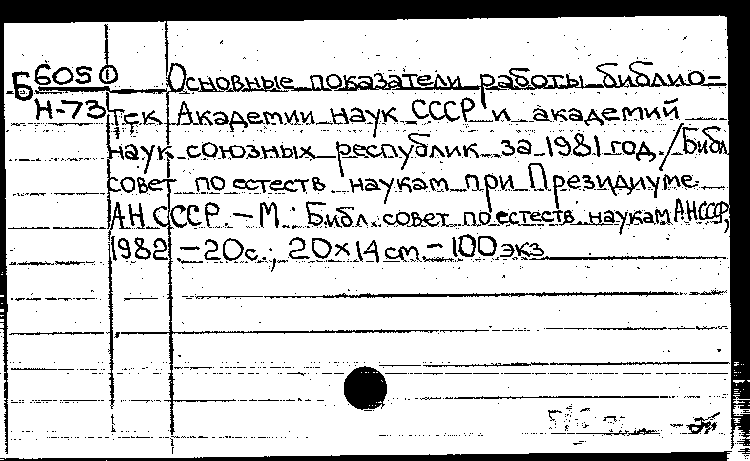 Б 6050 Основные показатели работы библио-
Н-73 тек Академии наук СССР и академий
наук союзных республик за 1981 год./Библ
совет по естеств наукам при Президиуме
АН СССР. – М.: Библ. совет по естеств. наукам АН СССР,
1982 – 20с.; 20×14 cm – 100 экз